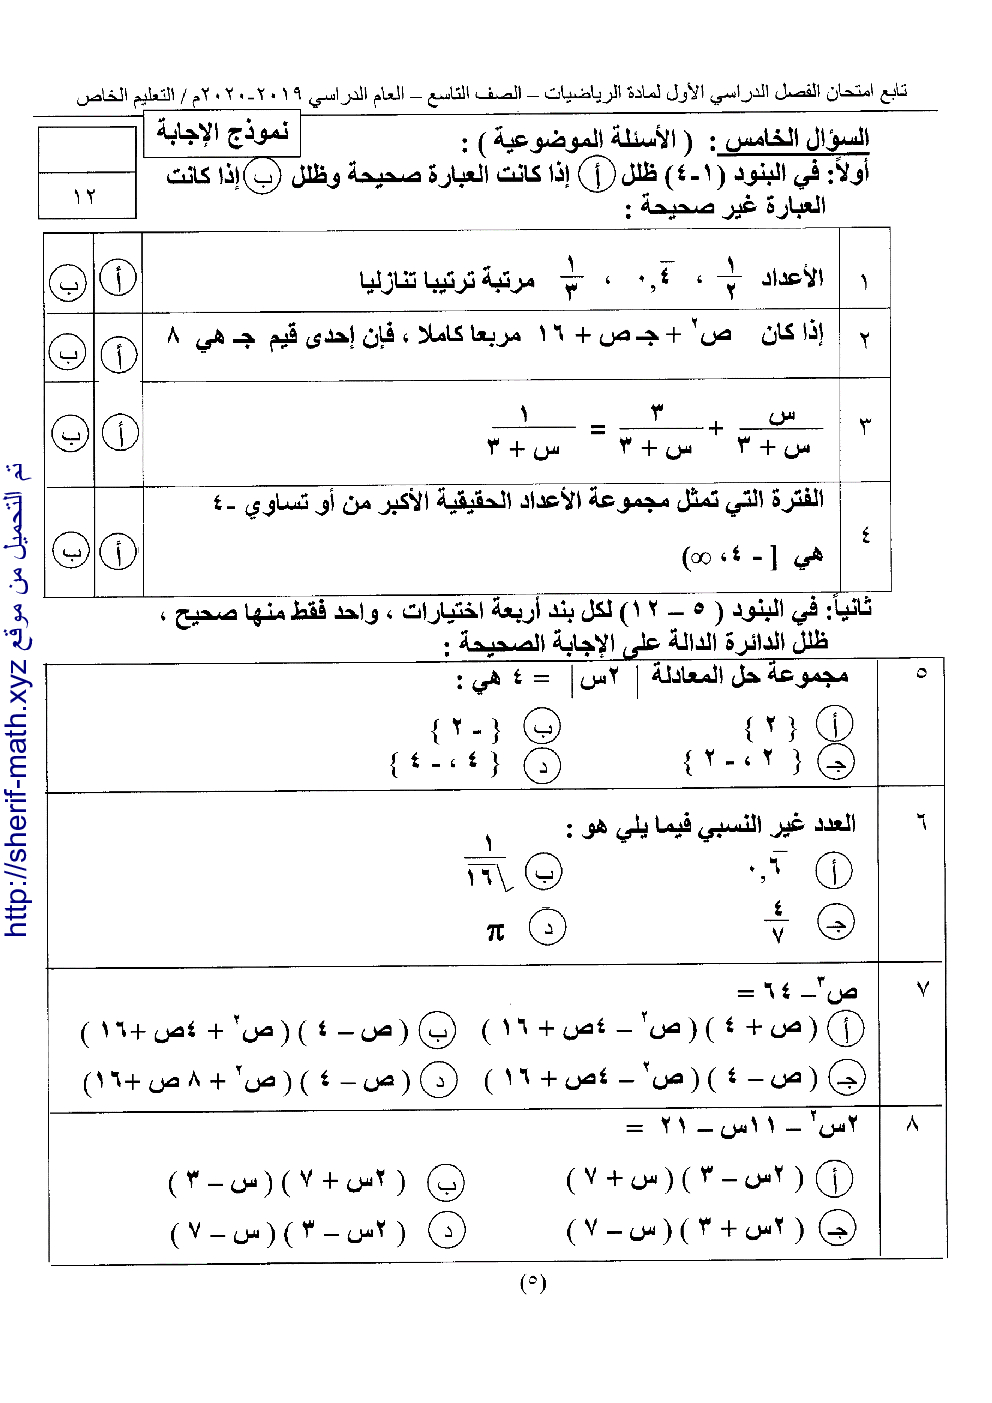 تابع امتحان الفصل الدراسي الأول لمادة الرياضيات – الصف التاسع – العام الدراسي ٢٠١٩-٢٠٢٠م / التعليم الخاص
نموذج الإجابة
السؤال الخامس : ( الأسئلة الموضوعية ) :
أولاً: في البنود (١-٤) ظلل أ إذا كانت العبارة صحيحة وظلل ب إذا كانت
العبارة غير صحيحة :
١٢
١ الأعداد ١/٢ ، ٠,٤̅ ، ١/٣ مرتبة ترتيبا تنازليا أ ب
٢ إذا كان ص² + جـ ص + ١٦ مربعا كاملا ، فإن إحدى قيم جـ هي ٨ أ ب
٣ س/(س + ٣) + ٣/(س + ٣) = ١/(س + ٣) أ ب
٤ الفترة التي تمثل مجموعة الأعداد الحقيقية الأكبر من أو تساوي -٤
هي [ - ٤ ، ∞) أ ب
ثانياً: في البنود ( ٥ – ١٢ ) لكل بند أربعة اختيارات ، واحد فقط منها صحيح ،
ظلل الدائرة الدالة على الإجابة الصحيحة :
٥ مجموعة حل المعادلة | ٢س | = ٤ هي :
أ { ٢ } ب { - ٢ }
جـ { ٢ ، - ٢ } د { ٤ ، - ٤ }
٦ العدد غير النسبي فيما يلي هو :
أ ٠,٦̅ ب ١/√١٦
جـ ٤/٧ د π
٧ ص³ – ٦٤ =
أ ( ص + ٤ ) ( ص² – ٤ص + ١٦ ) ب ( ص – ٤ ) ( ص² + ٤ص +١٦ )
جـ ( ص – ٤ ) ( ص² – ٤ص + ١٦ ) د ( ص – ٤ ) ( ص² + ٨ ص +١٦)
٨ ٢س² – ١١س – ٢١ =
أ ( ٢س – ٣ ) ( س + ٧ ) ب ( ٢س + ٧ ) ( س – ٣ )
جـ ( ٢س + ٣ ) ( س – ٧ ) د ( ٢س – ٣ ) ( س – ٧ )
(٥)
تم التحميل من موقع http://sherif-math.xyz